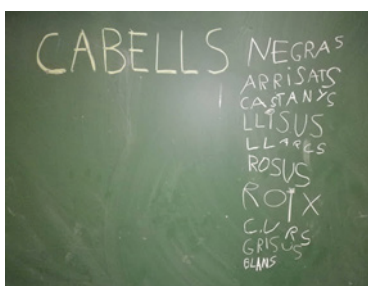 CABELLS
NEGRAS
ARRISATS
CASTANYS
LLISUS
LLARCS
ROSUS
ROIX
CURS
GRISUS
BLANS